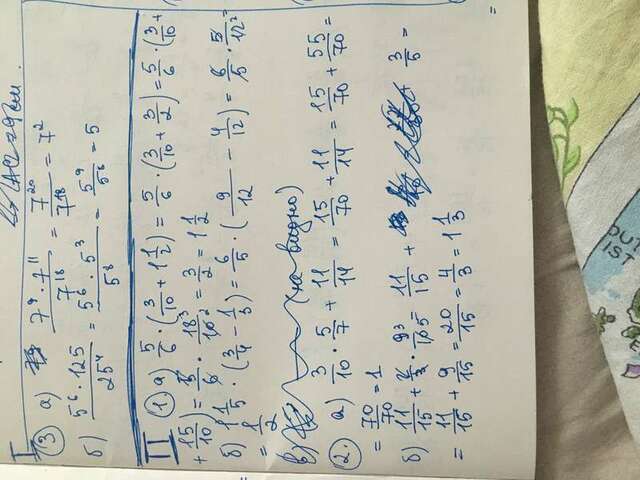 I
③ а) (7⁹ · 7¹¹)/7¹⁸ = 7²⁰/7¹⁸ = 7²
б) (5⁶ · 125)/25⁴ = (5⁶ · 5³)/5⁸ = 5⁹/5⁸ = 5
II
①. а) 5/6 · (3/10 + 1 1/2) = 5/6 · (3/10 + 3/2) = 5/6 · (3/10 +
+ 15/10) = 5/6 · 18/10 = 3/2 = 1 1/2
б) 1 1/5 · (3/4 − 1/3) = 6/5 · (9/12 − 4/12) = 6/5 · 5/12 =
= 1/2
в) (не видно)
②. а) 3/10 · 5/7 + 11/14 = 15/70 + 11/14 = 15/70 + 55/70 =
= 70/70 = 1
б) 11/15 + · 11/15 + 3/5 =
= 11/15 + 9/15 = 20/15 = 4/3 = 1 1/3
DU
IST